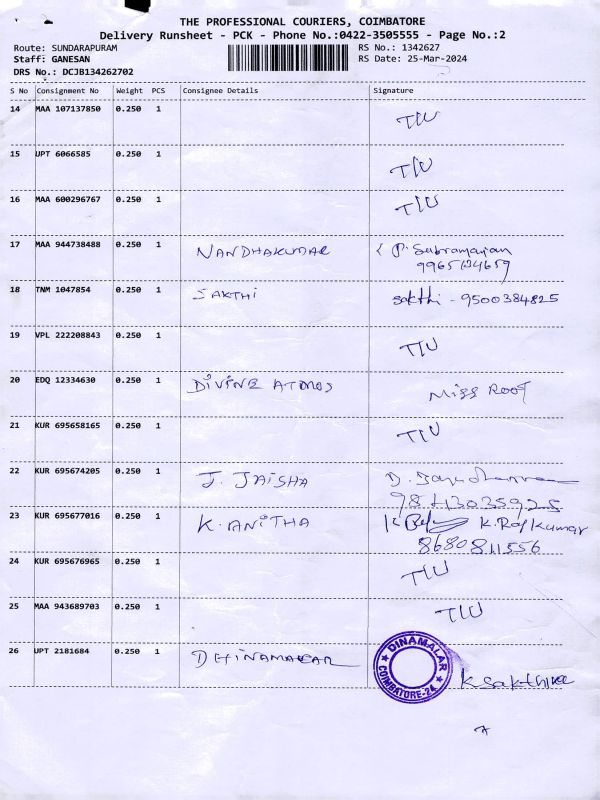 THE PROFESSIONAL COURIERS, COIMBATORE
Delivery Runsheet - PCK - Phone No.:0422-3505555 - Page No.:2
Route: SUNDARAPURAM RS No.: 1342627
Staff: GANESAN RS Date: 25-Mar-2024
DRS No.: DCJB134262702
S No Consignment No Weight PCS Consignee Details Signature
14 MAA 107137850 0.250 1 T/U
15 UPT 6066585 0.250 1 T/U
16 MAA 600296767 0.250 1 T/U
17 MAA 944738488 0.250 1 NANDHAKUMAR P. Subramanian
18 TNM 1047854 0.250 1 SAKTHI sakthi - 9500384825
19 VPL 222208843 0.250 1 T/U
20 EDQ 12334630 0.250 1 DIVINE ATMOS Miss Roof
21 KUR 695658165 0.250 1 T/U
22 KUR 695674205 0.250 1 J. JAISHA
23 KUR 695677016 0.250 1 K. ANITHA K. Rajkumar
8680811556
24 KUR 695676965 0.250 1 T/U
25 MAA 943689703 0.250 1 T/U
26 UPT 2181684 0.250 1 DHINAMALAR
DINAMALAR
COIMBATORE-24